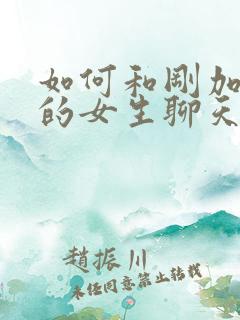 如何和刚加
的女生聊天
赵振川
未经同意禁止转载